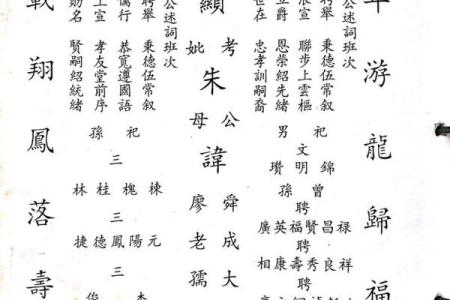 游龍歸福
公述詞班次
聘舉 秉德伍常叙
宣 聯步上雲樞
立爵 恩榮紹先緒
世在 忠孝訓嗣裔
祀男
文
錦明瓚
曾孫
聘
禄昌賢福英廣
聘
祥良秀壽康相
聘
顯考妣朱公母諱
舜成大
廖老孺
公述詞班次
聘舉 秉德伍常叙
行 恭寬遵國語
上宣 孝友堂前序
名 賢嗣紹統緒
祀孫
三
棟槐桂林
三
元陽鳳德捷
三
翔鳳落壽